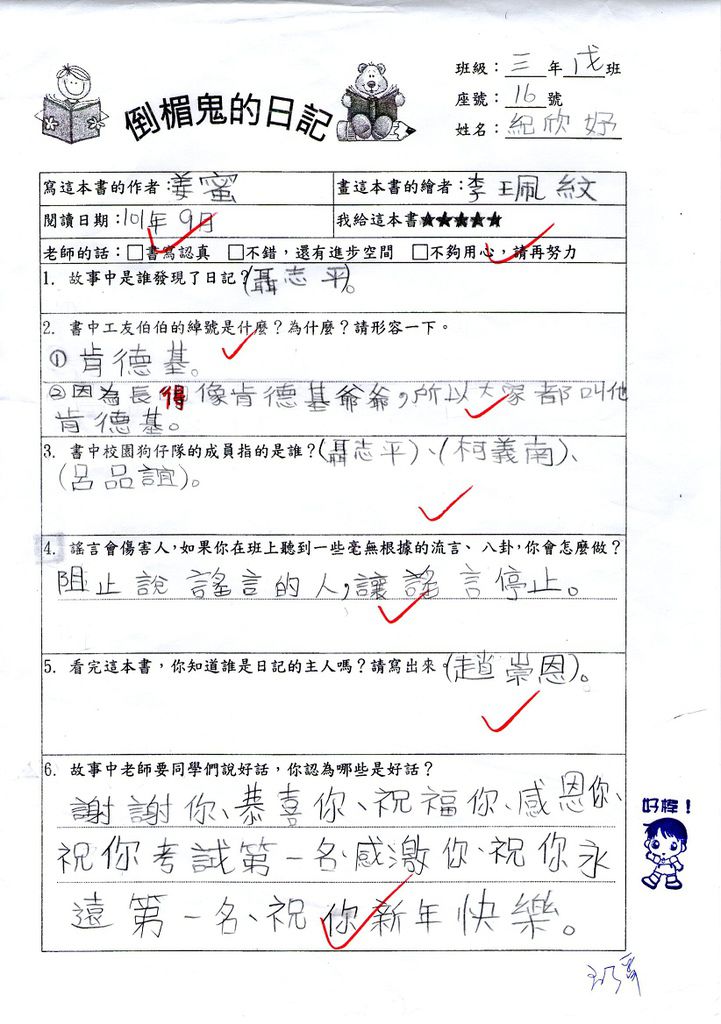 班級：三年戊班
座號：16號
姓名：紀欣妤
倒楣鬼的日記
寫這本書的作者：姜蜜
畫這本書的繪者：李王珮紋
閱讀日期：101年9月
我給這本書★★★★★
老師的話：□書寫認真 □不錯，還有進步空間 □不夠用心，請再努力
1. 故事中是誰發現了日記？(聶志平)。
2. 書中工友伯伯的綽號是什麼？為什麼？請形容一下。
①肯德基。
②因為長得像肯德基爺爺，所以大家都叫他
肯德基。
3. 書中校園狗仔隊的成員指的是誰？(聶志平)、(柯義南)、
(呂品誼)。
4. 謠言會傷害人，如果你在班上聽到一些毫無根據的流言、八卦，你會怎麼做？
阻止說謠言的人，讓謠言停止。
5. 看完這本書，你知道誰是日記的主人嗎？請寫出來。(趙崇恩)。
6. 故事中老師要同學們說好話，你認為哪些是好話？
謝謝你、恭喜你、祝福你、感恩你、
祝你考試第一名、感激你、祝你永
遠第一名、祝你新年快樂。
好棒！